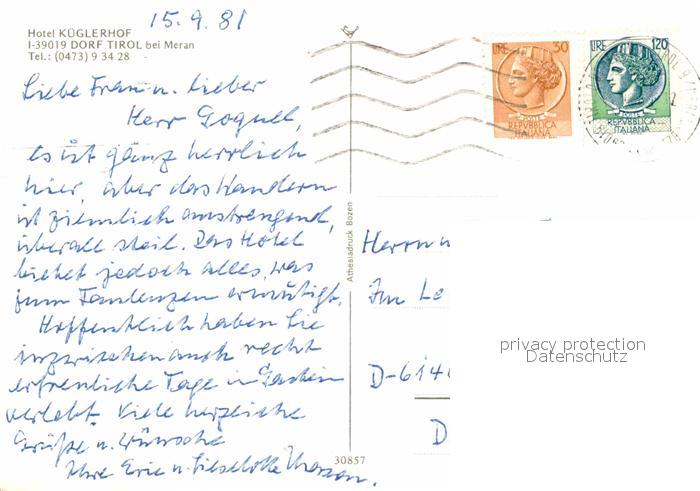 15.9.81
Hotel KÜGLERHOF
I-39019 DORF TIROL bei Meran
Tel.: (0473) 9 34 28
Liebe Frau u. lieber
Herr Goguel,
es ist ganz herrlich
hier, aber das Wandern
ist ziemlich anstrengend,
überall steil. Das Hotel
bietet jedoch alles, was
zum Faulenzen ermutigt.
Hoffentlich haben Sie
inzwischen auch recht
erfreuliche Tage in Gastein
verlebt. Viele herzliche
Grüße u. Wünsche
Ihre Eric u. Lieselotte
Athesiadruck Bozen
30857
LIRE 30
POSTE
REPVBBLICA
ITALIANA
LIRE 120
POSTE
REPVBBLICA
ITALIANA
Herrn u
Im Le
D-614
D
privacy protection
Datenschutz